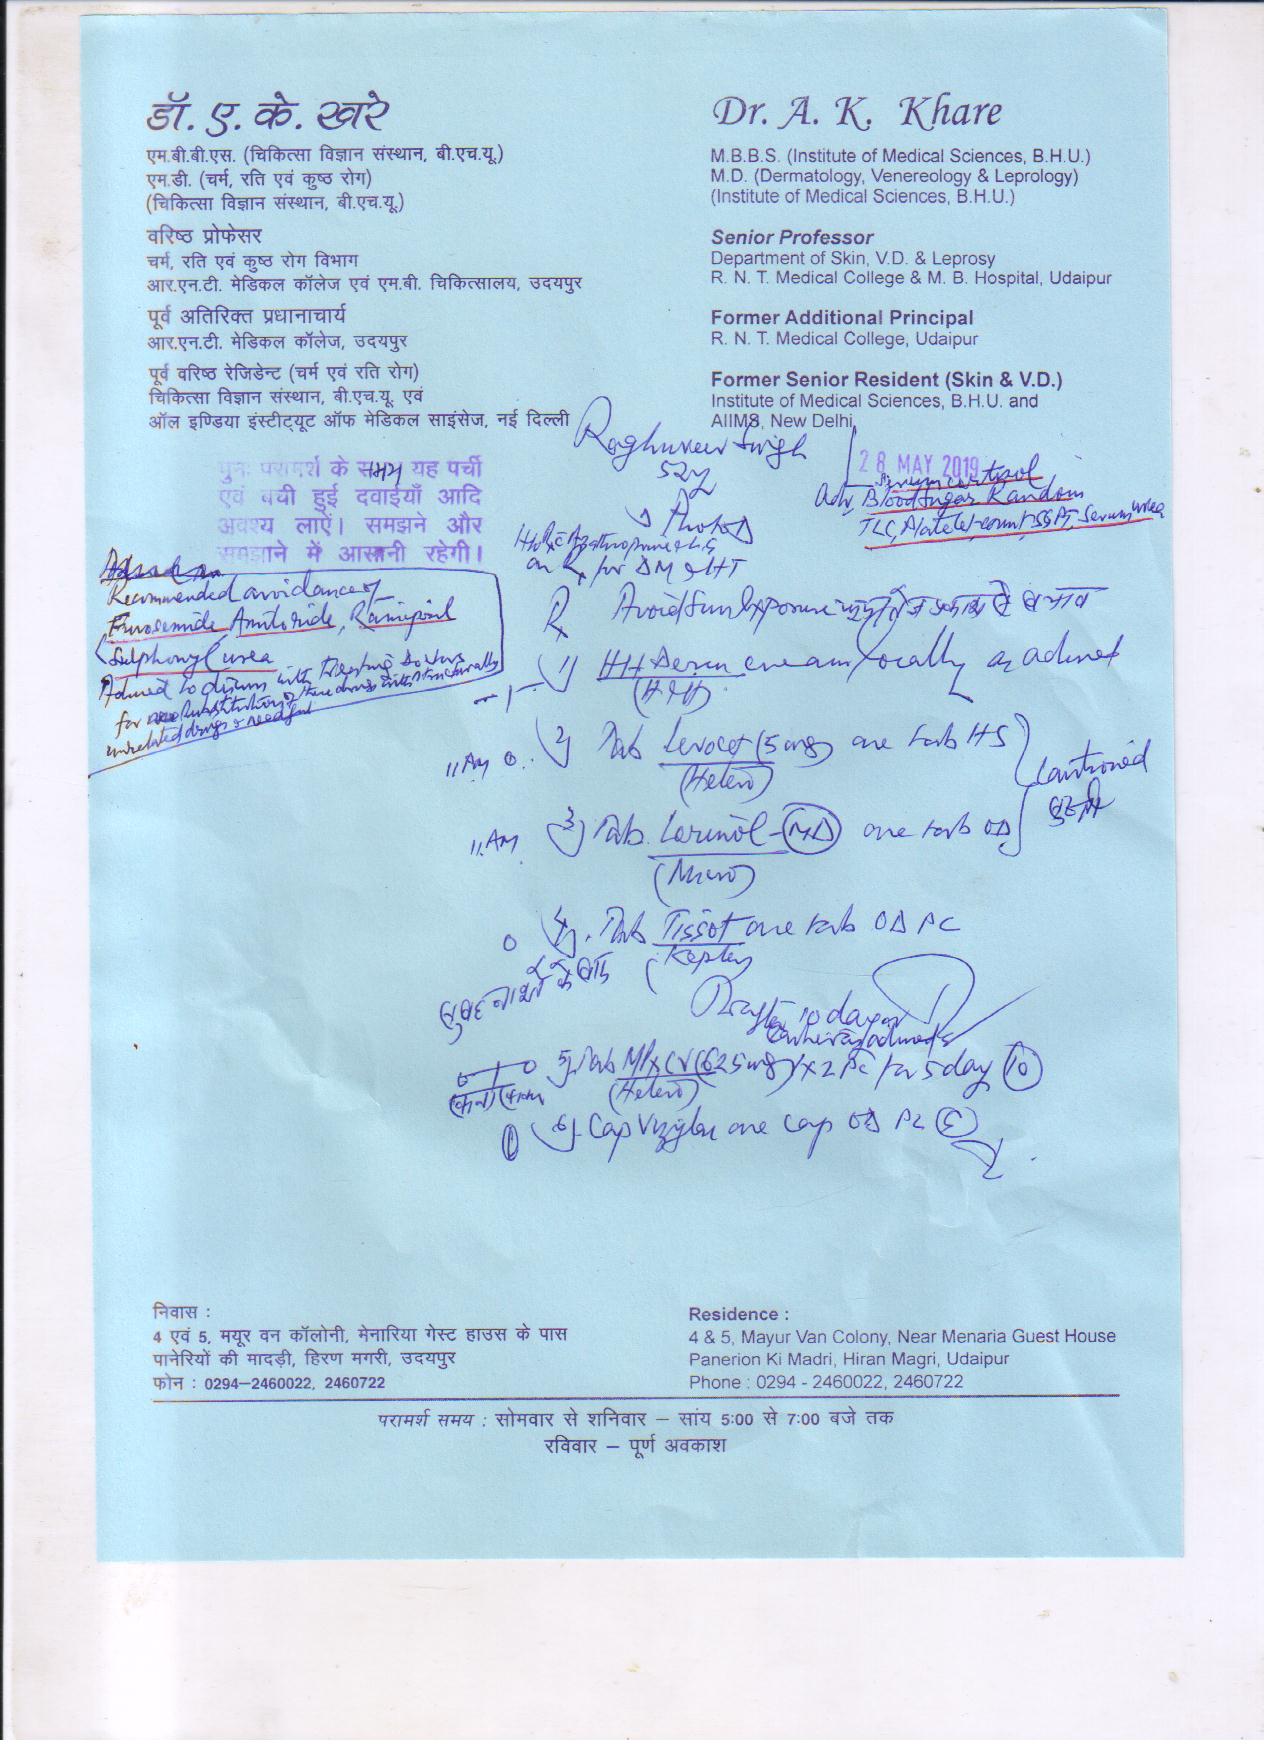 डॉ. ए. के. खरे
एम.बी.बी.एस. (चिकित्सा विज्ञान संस्थान, बी.एच.यू.)
एम.डी. (चर्म, रति एवं कुष्ठ रोग)
(चिकित्सा विज्ञान संस्थान, बी.एच.यू.)
वरिष्ठ प्रोफेसर
चर्म, रति एवं कुष्ठ रोग विभाग
आर.एन.टी. मेडिकल कॉलेज एवं एम.बी. चिकित्सालय, उदयपुर
पूर्व अतिरिक्त प्रधानाचार्य
आर.एन.टी. मेडिकल कॉलेज, उदयपुर
पूर्व वरिष्ठ रेजिडेन्ट (चर्म एवं रति रोग)
चिकित्सा विज्ञान संस्थान, बी.एच.यू. एवं
ऑल इण्डिया इंस्टीट्यूट ऑफ मेडिकल साइंसेज, नई दिल्ली
Dr. A. K. Khare
M.B.B.S. (Institute of Medical Sciences, B.H.U.)
M.D. (Dermatology, Venereology & Leprology)
(Institute of Medical Sciences, B.H.U.)
Senior Professor
Department of Skin, V.D. & Leprosy
R. N. T. Medical College & M. B. Hospital, Udaipur
Former Additional Principal
R. N. T. Medical College, Udaipur
Former Senior Resident (Skin & V.D.)
Institute of Medical Sciences, B.H.U. and
AIIMS, New Delhi
Raghuveer Singh
52y
28 MAY 2019
Serum cortisol
Adv, Blood Sugar Random
TLC, Platelet count, SGPT, Serum urea
पुनः परामर्श के समय यह पर्ची
एवं बची हुई दवाईयाँ आदि
अवश्य लाऐं। समझने और
समझाने में आसानी रहेगी।
Recommended avoidance of
Furosemide, Amiloride, Ramipril
Sulphonylurea
Advised to discuss with treating Doctors
for substitution of these drugs with structurally
unrelated drugs
on Rx for DM & HT
Rx Avoid Sun Exposure
1) cream locally as advised
(H&H)
11 AM 2) Tab Levocet (5mg) one tab HS
(Hetero)
Cautioned
11 AM 3) Tab. MD one tab OD
(Micro)
4) Tab Tissot one tab OD PC
के बाद
R after 10 days
5) Tab (625mg) 1x2 PC for 5 day 10
(Hetero)
6) Cap one cap OD PC
निवास :
4 एवं 5, मयूर वन कॉलोनी, मेनारिया गेस्ट हाउस के पास
पानेरियों की मादड़ी, हिरण मगरी, उदयपुर
फोन : 0294–2460022, 2460722
Residence :
4 & 5, Mayur Van Colony, Near Menaria Guest House
Panerion Ki Madri, Hiran Magri, Udaipur
Phone : 0294 - 2460022, 2460722
परामर्श समय : सोमवार से शनिवार – सांय 5:00 से 7:00 बजे तक
रविवार – पूर्ण अवकाश